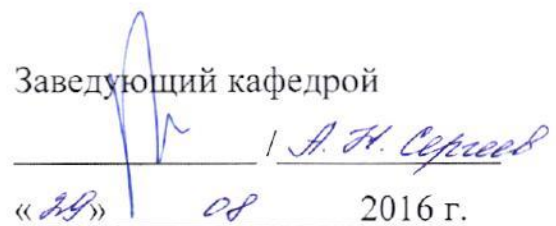 Заведующий кафедрой
/ А. Н. Сергеев
« 29 » 08 2016 г.